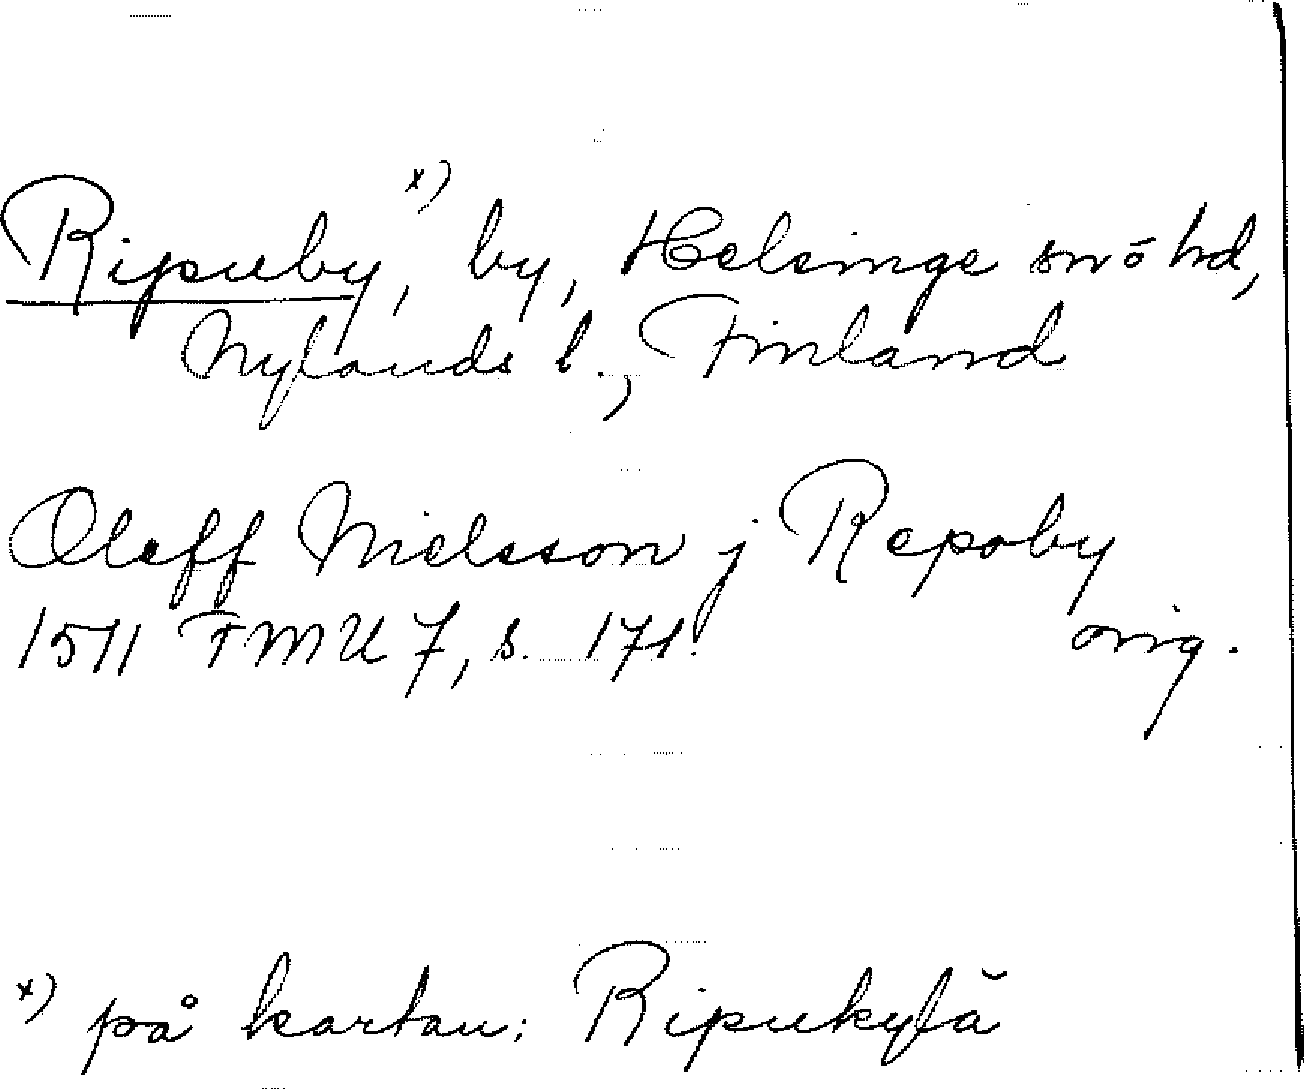 Ripuby, x) by, Helsinge sn o hd,
Nylands l., Finland
Oleff Nielsson j Repoby
1511 FMU 7, s. 171. orig.
x) på kartan: Ripukylä